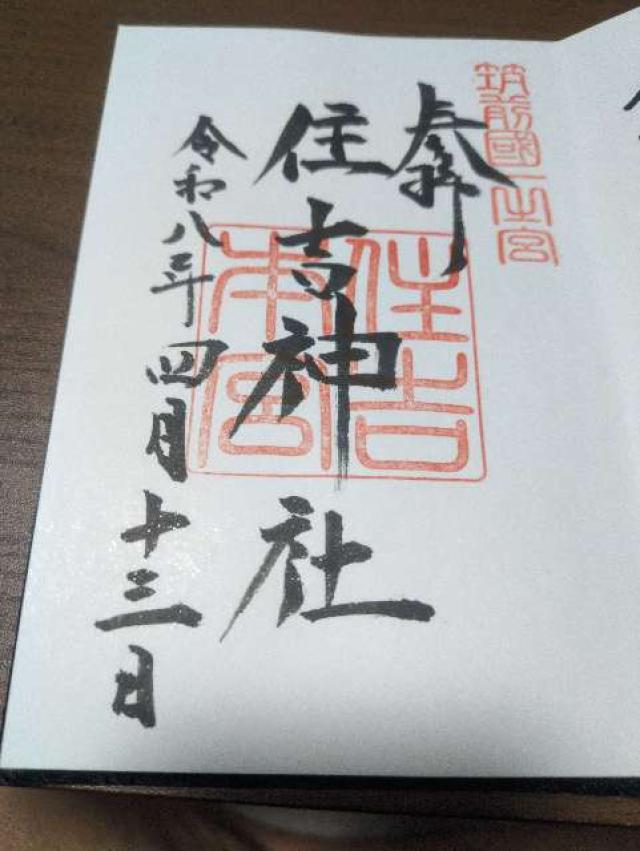 筑前國一之宮
奉拝
住吉神社
住吉本宮
令和八年四月十三日